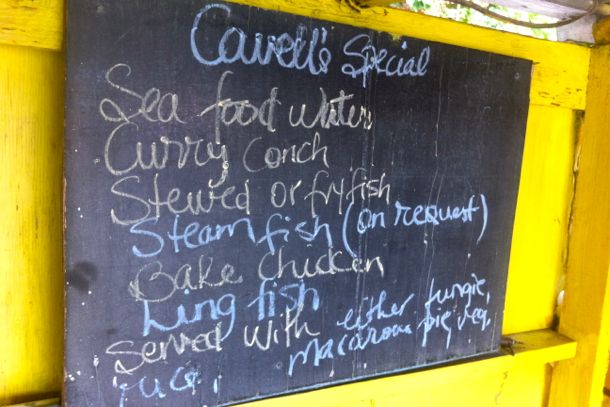 Cavell's Special
Sea food water
Curry Conch
Stewed or fry fish
Steam fish (on request)
Bake Chicken
Ling fish
Served with either fungie,
Macaroni pie, veg.